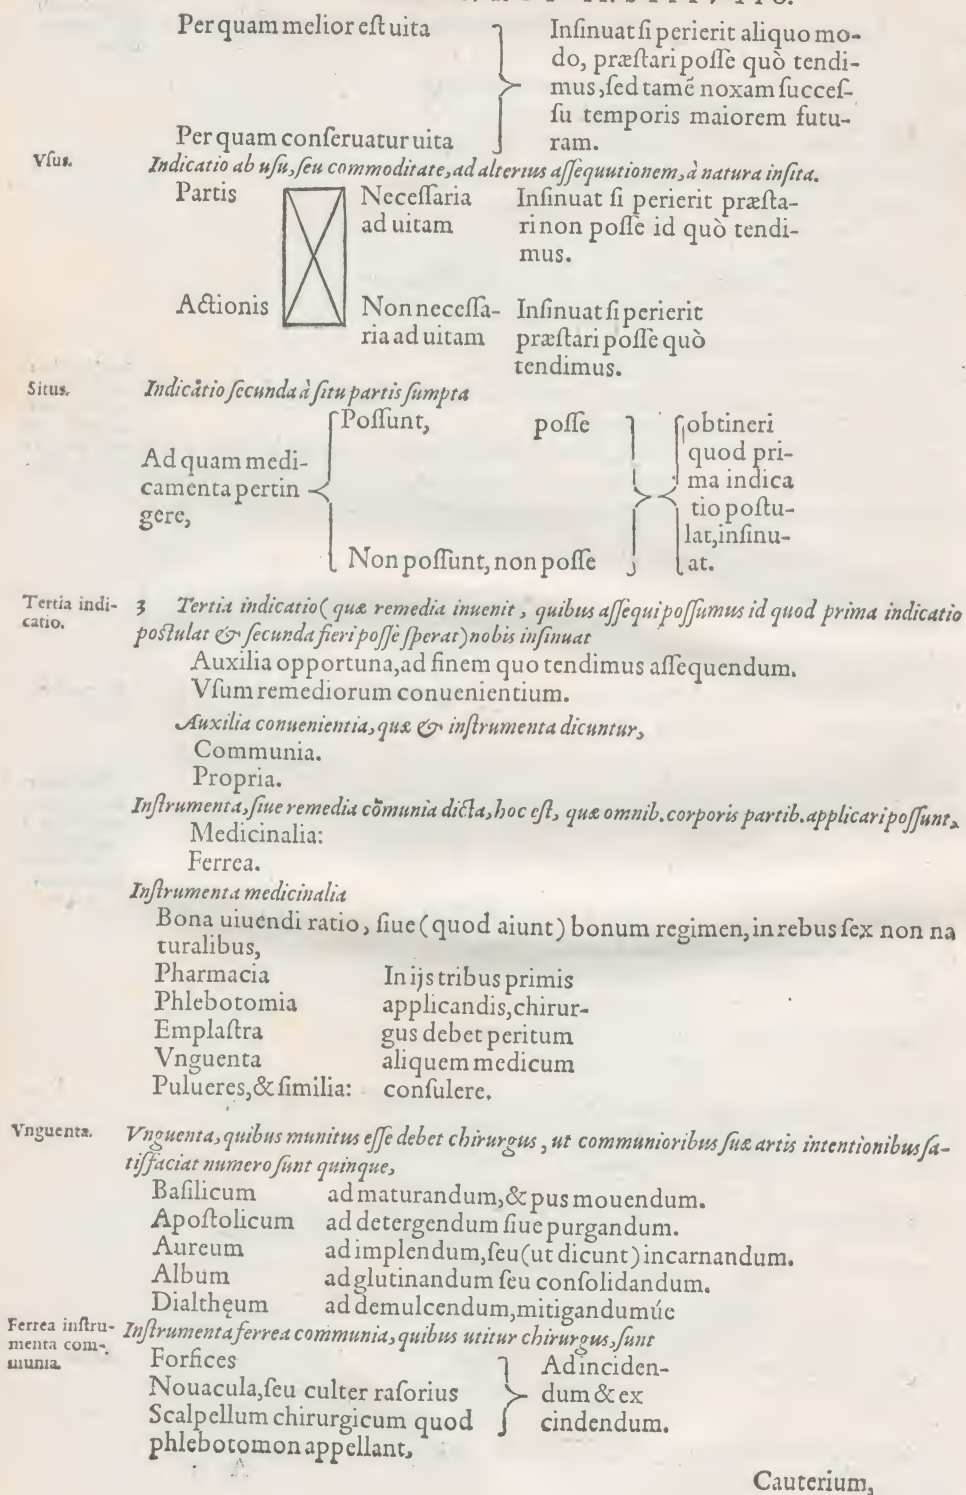 Per quam melior eſt uita
Inſinuat ſi perierit aliquo mo-
do, præſtari poſſe quò tendi-
mus, ſed tamẽ noxam ſucceſ-
ſu temporis maiorem futu-
ram.
Per quam conſeruatur uita
Vſus.
Indicatio ab uſu, ſeu commoditate, ad alterius aſſequutionem, à natura inſita.
Partis
Neceſſaria
ad uitam
Inſinuat ſi perierit præſta-
ri non poſſe id quò tendi-
mus.
Actionis
Non neceſſa-
ria ad uitam
Inſinuat ſi perierit
præſtari poſſe quò
tendimus.
Situs.
Indicatio ſecunda à ſitu partis ſumpta
Ad quam medi-
camenta pertin
gere,
Poſſunt, poſſe
Non poſſunt, non poſſe
obtineri
quod pri-
ma indica
tio poſtu-
lat, inſinu-
at.
Tertia indi-
catio.
3 Tertia indicatio (quæ remedia inuenit, quibus aſſequi poſſumus id quod prima indicatio
poſtulat & ſecunda fieri poſſe ſperat) nobis inſinuat
Auxilia opportuna, ad finem quo tendimus aſſequendum.
Vſum remediorum conuenientium.
Auxilia conuenientia, quæ & inſtrumenta dicuntur,
Communia.
Propria.
Inſtrumenta, ſiue remedia cõmunia dicta, hoc eſt, quæ omnib. corporis partib. applicari poſſunt,
Medicinalia:
Ferrea.
Inſtrumenta medicinalia
Bona uiuendi ratio, ſiue (quod aiunt) bonum regimen, in rebus ſex non na
turalibus,
Pharmacia
Phlebotomia
Emplaſtra
Vnguenta
Pulueres, & ſimilia:
In ijs tribus primis
applicandis, chirur-
gus debet peritum
aliquem medicum
conſulere.
Vnguenta.
Vnguenta, quibus munitus eſſe debet chirurgus, ut communioribus ſuæ artis intentionibus ſa-
tiſfaciat numero ſunt quinque,
Baſilicum ad maturandum, & pus mouendum.
Apoſtolicum ad detergendum ſiue purgandum.
Aureum ad implendum, ſeu (ut dicunt) incarnandum.
Album ad glutinandum ſeu conſolidandum.
Dialthęum ad demulcendum, mitigandumúe
Ferrea inſtru-
menta com-
munia.
Inſtrumenta ferrea communia, quibus utitur chirurgus, ſunt
Forfices
Nouacula, ſeu culter raſorius
Scalpellum chirurgicum quod
phlebotomon appellant,
Ad inciden-
dum & ex
cindendum.
Cauterium,